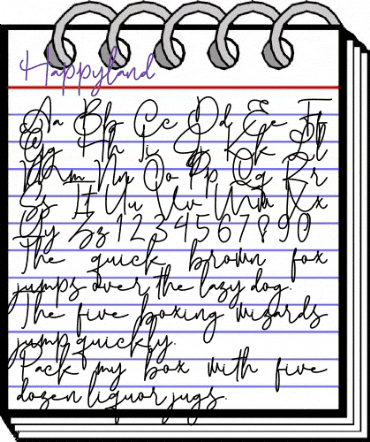 Happyland
Aa Bb Cc Dd Ee Ff
Gg Hh Ii Jj Kk Ll
Mm Nn Oo Pp Qq Rr
Ss Tt Uu Vv Ww Xx
Yy Zz 1 2 3 4 5 6 7 8 9 0
The quick brown fox
jumps over the lazy dog.
The five boxing wizards
jump quickly.
Pack my box with five
dozen liquor jugs.